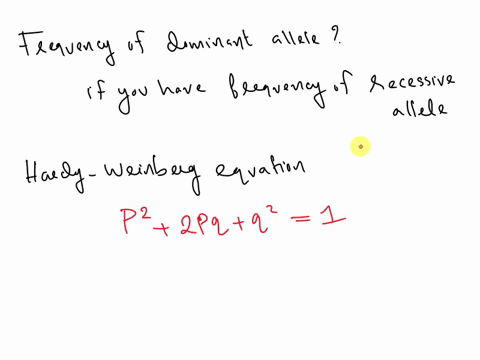 Frequency of dominant allele?
if you have frequency of recessive
allele
Hardy-Weinberg equation
P² + 2Pq + q² = 1